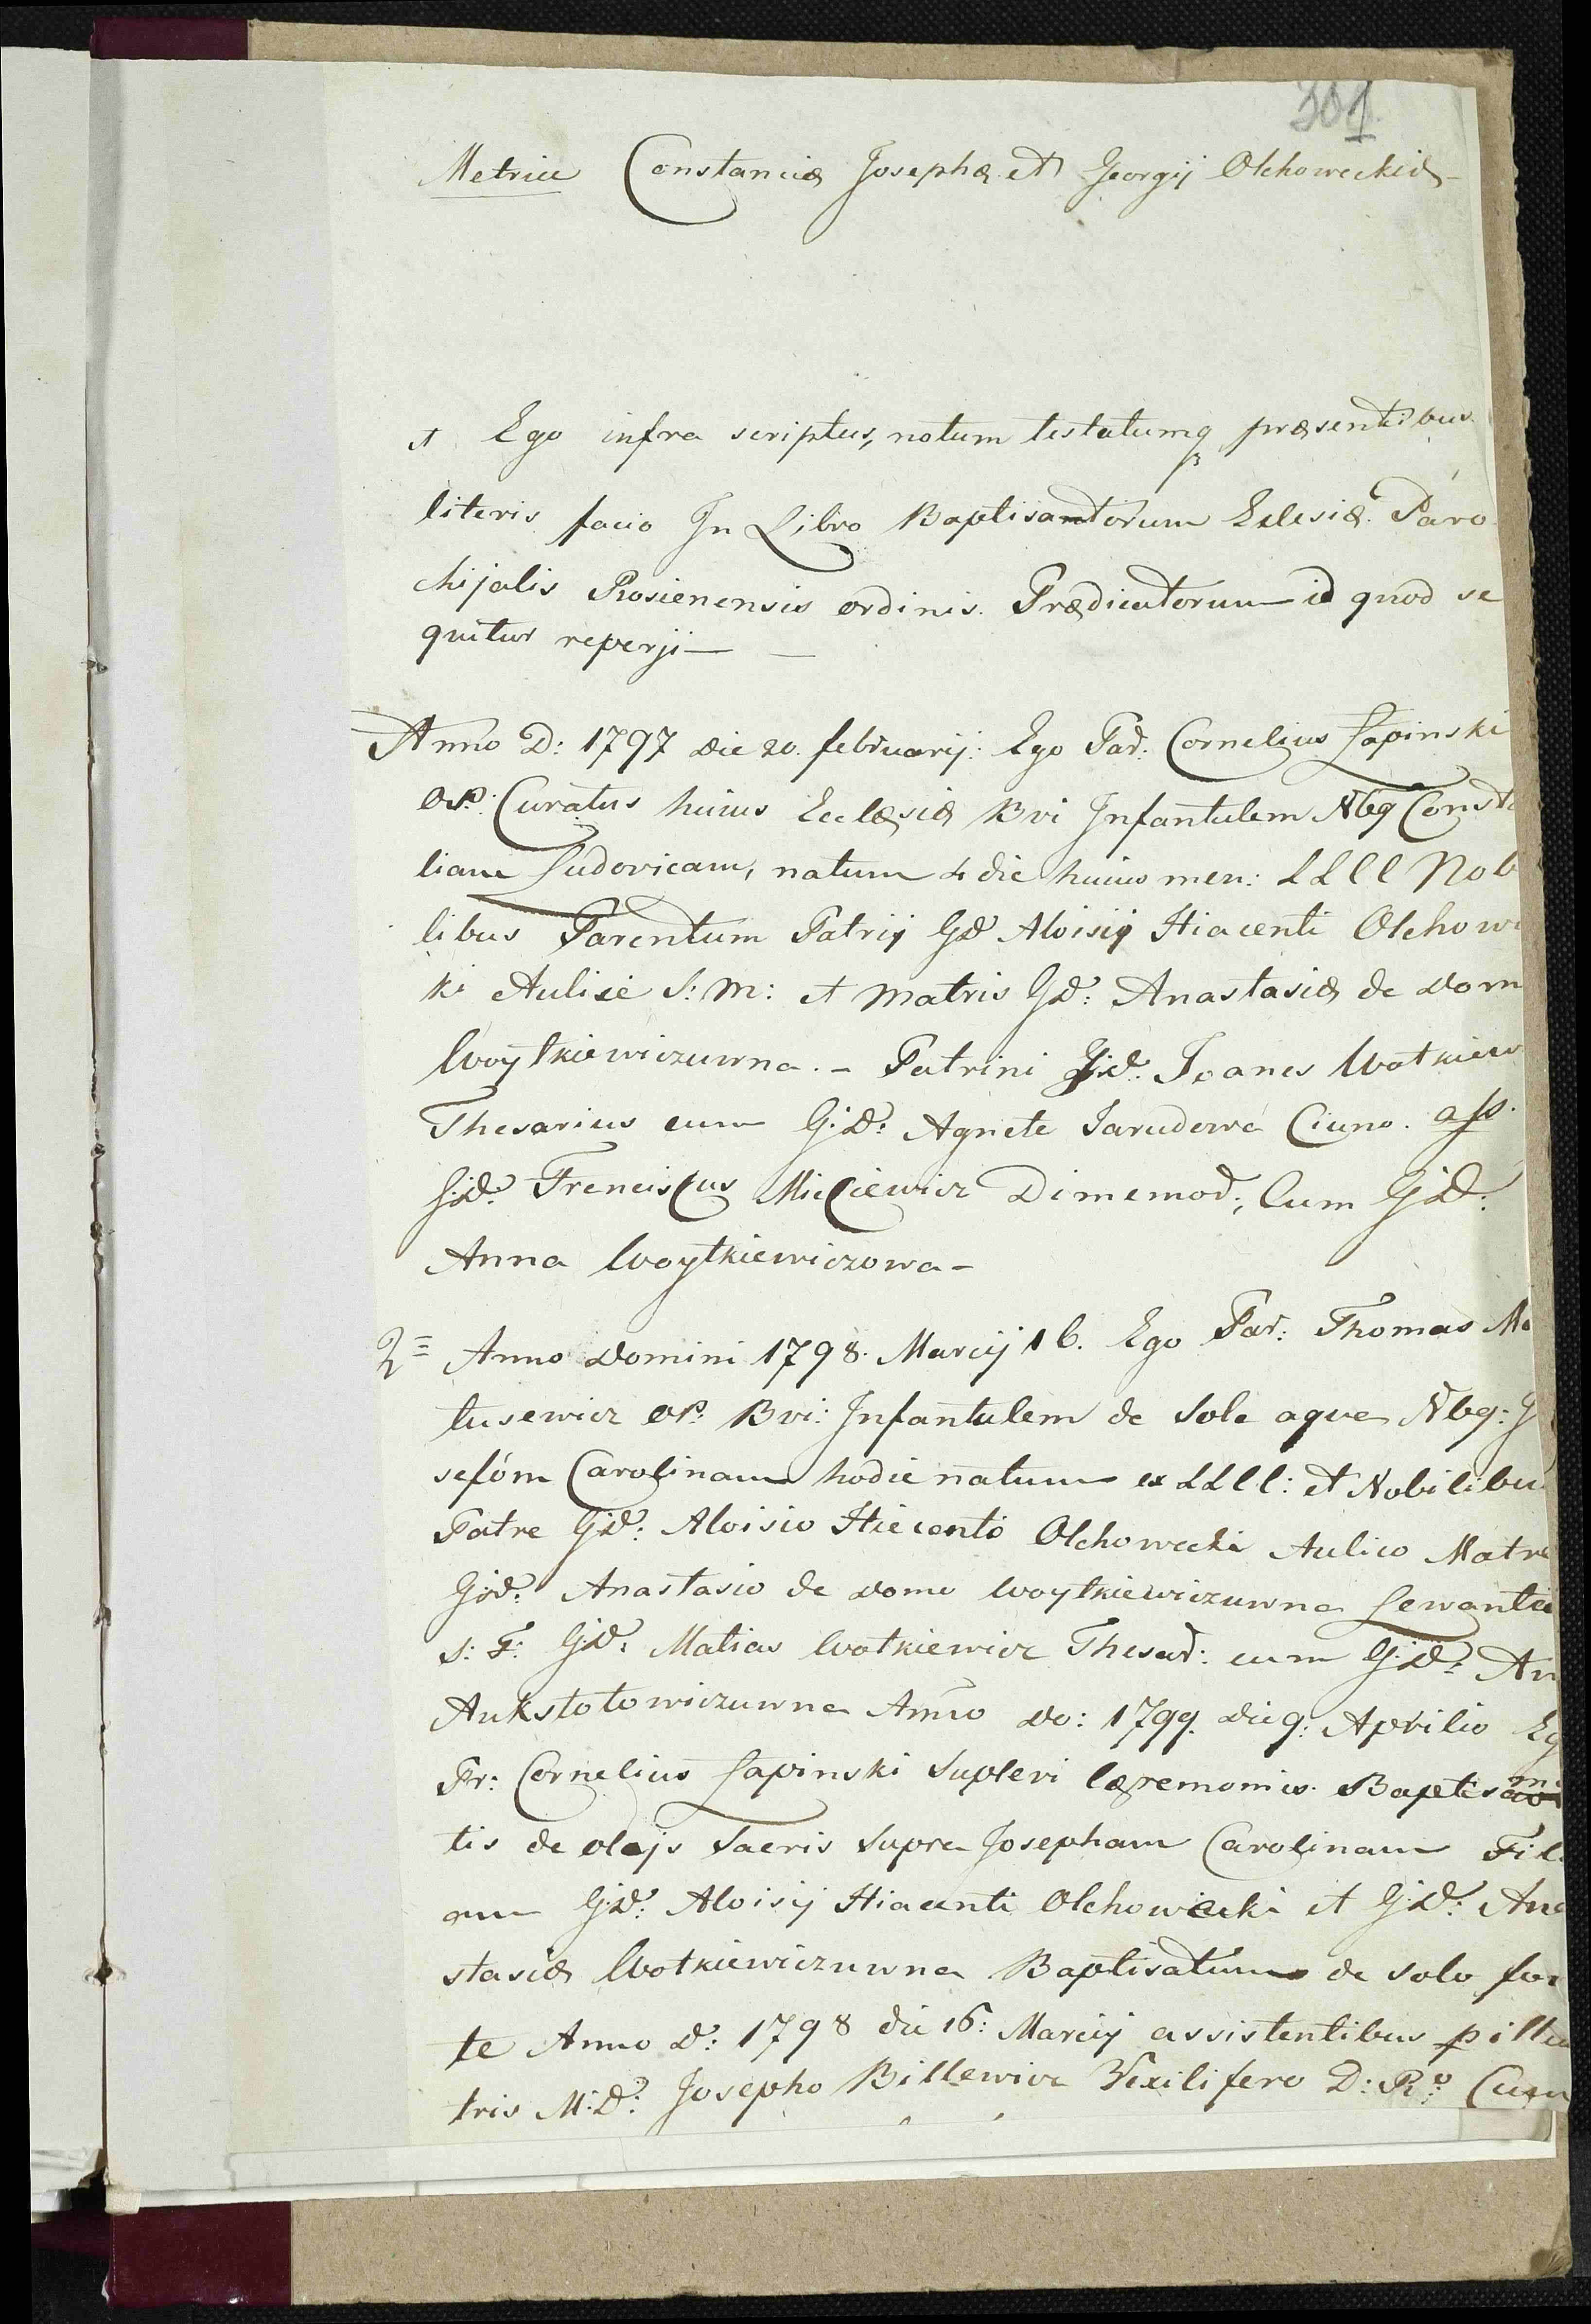 301.
Metrice Constanciæ Josephæ et Georgij Olchoweckich
Ego infra scriptus, notum testatumq præsentibus
literis facio In Libro Baptisantorum Eclesiæ Paro
chijalis Rosienensis ordinis Prædicatorum id quod se
quitur reperji
Anno D: 1797 die 20. februarij: Ego Pat. Cornelius Łapinski
OP. Curatus huius Ecclæsiæ Bvi Infantulem Nbq Const
liam Ludovicam, natum 4 die huius men: LLll Nob
libus Parentum Patrij GD Aloisij Hiacenti Olchow
ki Aulice S: M: et Matris GD: Anastasiæ de dom
Woytkiewiczuwna. - Patrini GD. Joanes Wotkiew
Thesarius cum G:D: Agnete Jarudowa Ciuno. ass.
G:D. Franciscus Miciewicz Dimemod; Cum G:D:
Anna Woytkiewiczowa -
2 = Anno Domini 1798. Marcij 16. Ego Pat: Thomas Ma
tusewicz OP. Bvi: Infantulem de Sola aqva Nbq: J
sefóm Carolinam hodie natum ex LLll: et Nobilibu
Patre GD: Aloisio Hiecento Olchowecki Aulico Matre
G:D: Anastasio de domo Woytkiewiczuwna Lewante
S: F: GD: Matias Wotkiewicz Thesad: cum G:D: An
Aukstotowiczuwna Anno do: 1799. die 9: Aprilio Eg
Fr: Cornelius Łapinski Suplevi Cæremonis Baptis
tis de olejs Sacris Supra Josepham Carolinam Fil
am G:D: Aloisij Hiacenti Olchowiecki et G:D: Ana
stasiæ Wotkiewiczuwna Baptisatum de solo fon
te Anno D: 1798 die 16: Marcij assistentibus pillus
tris M:D: Josepho Billewicz Vexilifero D: Ro Cum